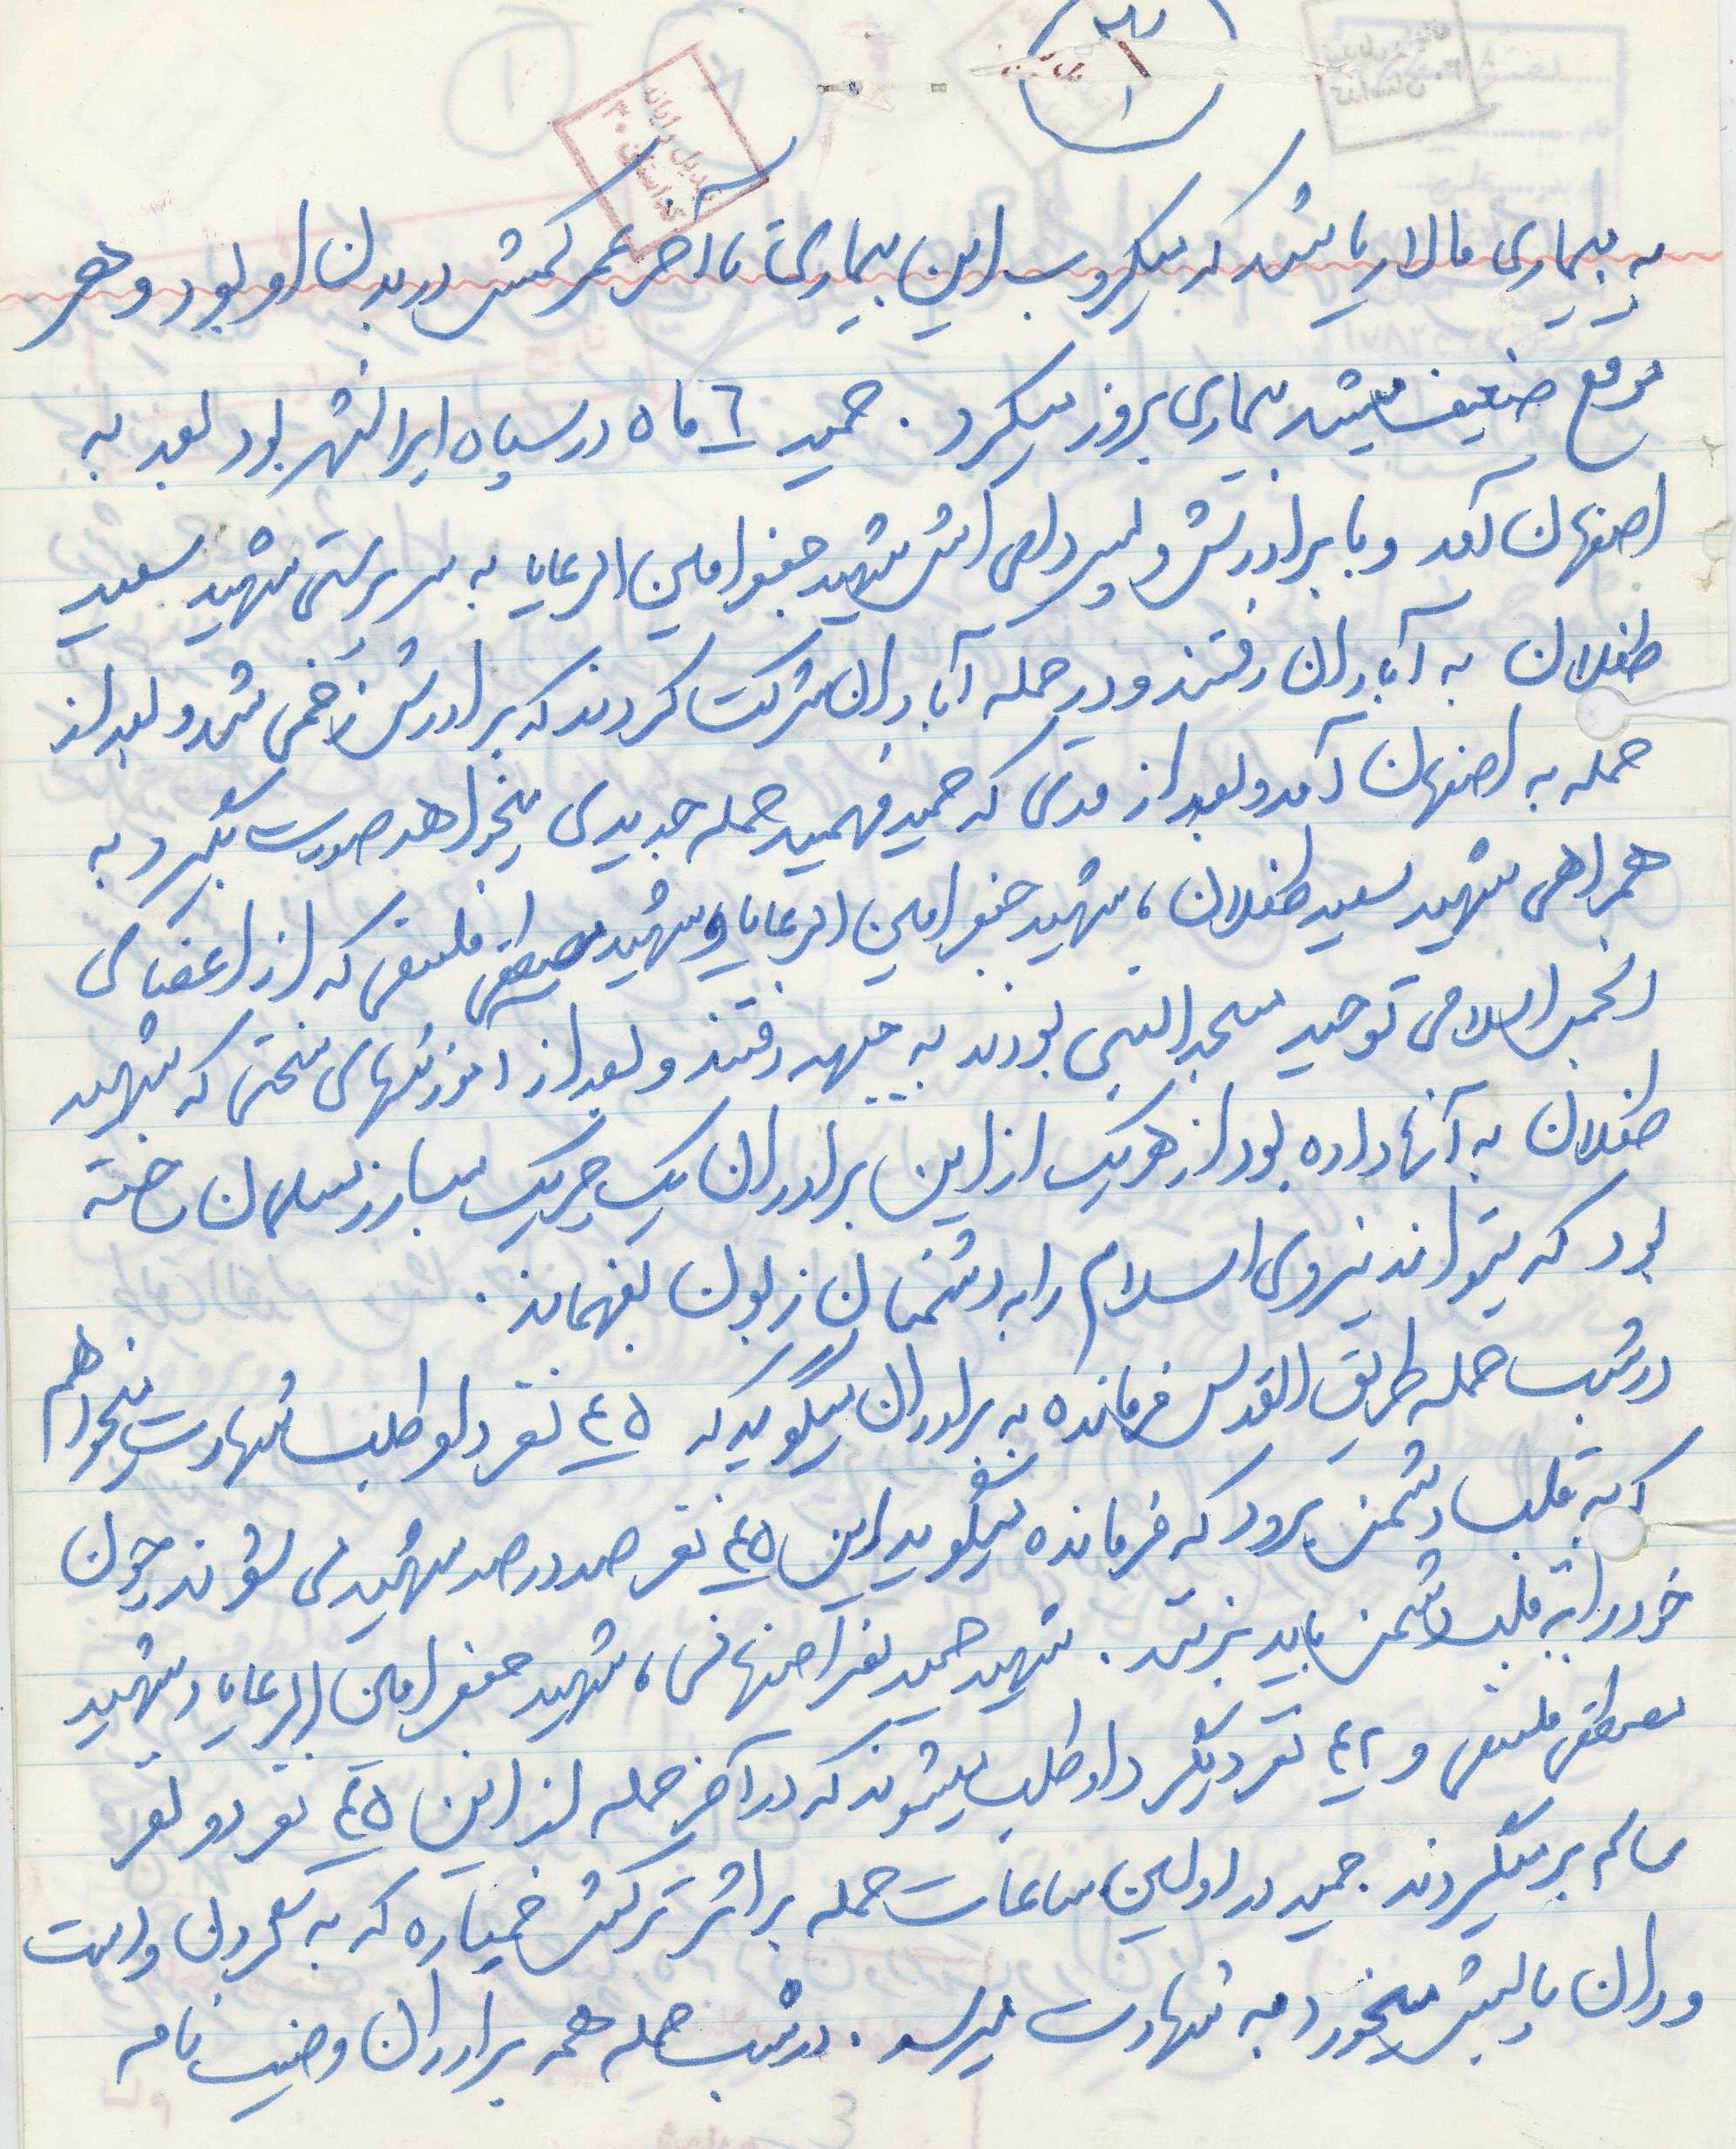 به بیماری مالاریا شد که میکروب این بیماری تا آخر عمر کمش در بدن او بود و هر
موقع ضعیف میشد بیماری بروز میکرد . حمید ٦ ماه در سپاه ایرانشهر بود بعد به
اصفهان آمد و با برادرش و پسر دایی اش شهید جعفر امین الرعایا به سرپرستی شهید سعید
طفلان به آبادان رفتند و در حمله آبادان شرکت کردند که برادرش زخمی شد و بعد از
حمله به اصفهان آمد و بعد از مدتی که حمید فهمید حمله جدیدی میخواهد صورت بگیرد به
همراهی شهید سعید طفلان ، شهید جعفر امین الرعایا و شهید مصطفی که از اعضای
انجمن اسلامی توحید مسجد النبی بودند به جبهه رفتند و بعد از آموزشهای سختی که شهید
طفلان به آنها داده بود از هر یک از این برادران یک چریک مبارز مسلمان ساخته
بود که بتواند نیروی اسلام را به دشمنان زبون بفهماند .
در شب حمله طریق القدس فرمانده به برادران میگوید که ٤٥ نفر داوطلب شهادت میخواهم
که به قلب دشمن برود که فرمانده میگوید این ٤٥ نفر صد در صد شهید می شوند چون
خود را به قلب دشمن باید بزنند . شهید حمید نفر اصفهانی ، شهید جعفر امین الرعایا و شهید
مصطفی و ٤٢ نفر دیگر داوطلب میشوند که در آخر حمله از این ٤٥ نفر دو نفر
سالم برمیگردند . حمید در اولین ساعات حمله بر اثر ترکش خمپاره که به گردن و است
و ران پایش میخورد به شهادت میرسد . در شب حمله همه برادران وصیت نامه